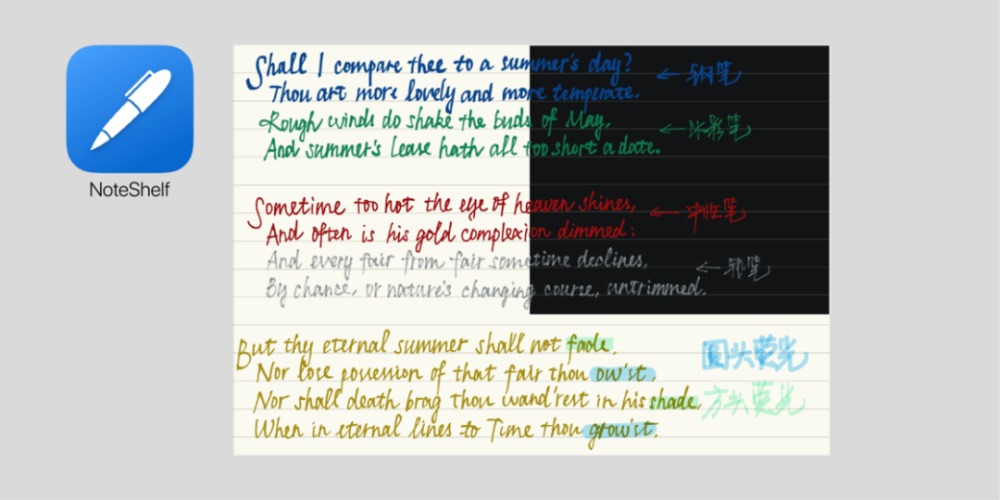 Shall I compare thee to a summer's day? ← 钢笔
Thou art more lovely and more temperate.
Rough winds do shake the buds of May, ← 水彩笔
And summer's lease hath all too short a date.
Sometime too hot the eye of heaven shines, ← 中性笔
And often is his gold complexion dimmed:
And every fair from fair sometime declines, ← 铅笔
By chance, or nature's changing course, untrimmed.
But thy eternal summer shall not fade, 圆头荧光
Nor lose possession of that fair thou ow'st,
Nor shall death brag thou wand'rest in his shade, 方头荧光
When in eternal lines to Time thou grow'st.
NoteShelf